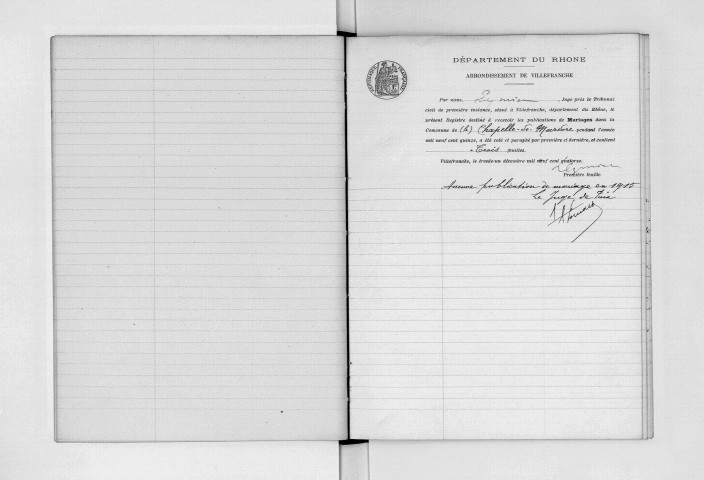 DÉPARTEMENT DU RHONE
ARRONDISSEMENT DE VILLEFRANCHE
Par nous, Juge près le Tribunal
civil de première instance, séant à Villefranche, département du Rhône, le
présent Registre destiné à recevoir les publications de Mariages dans la
Commune de (la) Chapelle-de-Mardore pendant l'année
mil neuf cent quinze, a été coté et paraphé par première et dernière, et contient
Trois feuilles.
Villefranche, le trente-un décembre mil neuf cent quatorze.
Première feuille
Aucune publication de mariage en 1915
Le Juge de Paix